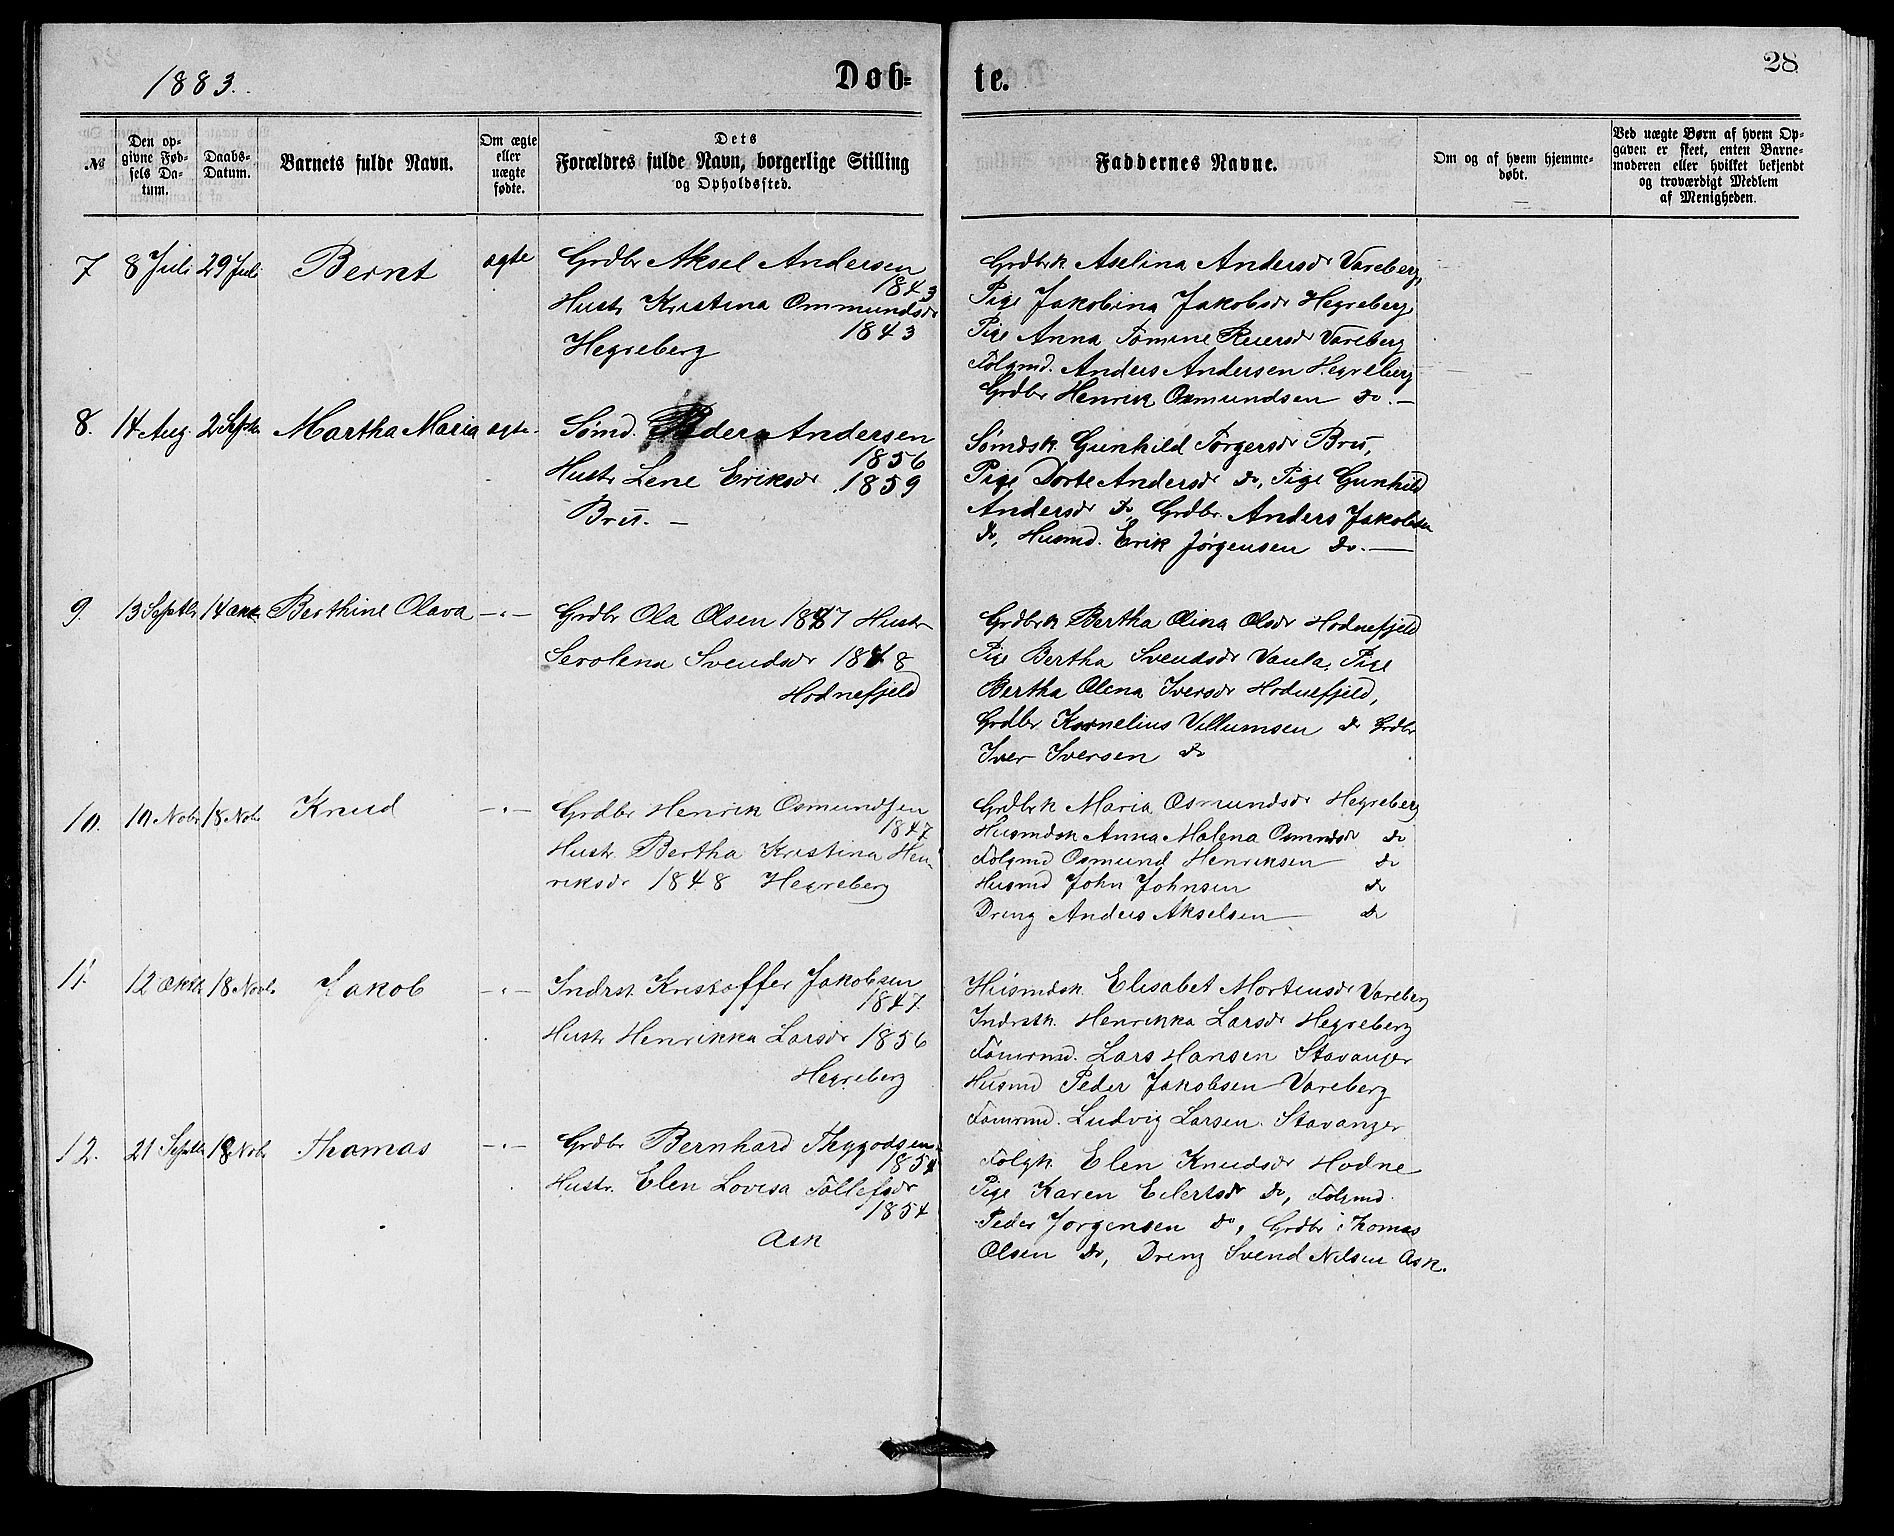 1883.
Døb-
te.
28
№
Den op-
givne Fød-
sels Da-
tum.
Daabs-
Datum.
Barnets fulde Navn.
Om ægte
eller
uægte
fødte.
Dets
Forældres fulde Navn, borgerlige Stilling
og Opholdssted.
Faddernes Navne.
Om og af hvem hjemme-
døbt.
Ved uægte Børn af hvem Op-
gaven er skeet, enten Barne-
moderen eller hvilket bekjendt
og troværdigt Medlem
af Menigheden.
7 8 Juli 29 Juli Bernt ægte
Grdbr Aksel Andersen
1843
Hustr Kristina Ommundsdr
1843
Hegreberg
Grdbrk Aselina Andersdr Vareberg,
Pige Jakobina Jakobsdr Hegreberg
Pige Anna Tomine Reiersdr Vareberg
Følgmd. Anders Andersen Hegreberg
Grdbr Henrik Osmundsen do. –
8. 14 Aug. 2 Septbr Martha Maria ægte.
Sømd. Peder Andersen
1856
Hustr Lene Eriksdr 1859
Bru. –
Sømdsk. Gunhild Torgersdr Bru,
Pige Dorte Andersdr do, Pige Gunhild
Andersdr do, Grdbr. Anders Jakobsen
do, Husmd. Erik Jørgensen do. –
9. 13 Septbr 14 Oktb. Berthine Olava –"–
Grdbr Ola Olsen 1847 Hustr
Serolena Svendsdr 1848
Hodnefjeld
Grdbrk Bertha Olina Olsdr Hodnefjeld
Pige Bertha Svendsdr Vaula, Pige
Bertha Olena Iversdr Hodnefjeld,
Grdbr Kornelius Villumsen do Grdbr
Iver Iversen do
10. 10 Nobr 18 Nobr Knud –"–
Grdbr Henrik Osmundsen
1847
Hustr. Bertha Kristina Hen-
riksdr 1848 Hegreberg
Grdbrk Maria Osmundsdr Hegreberg
Husmdsk Anna Malena Osmndsdr do
Følgmd Osmund Henriksen do
Husmd John Johnsen do
Dreng Anders Akselsen do
11. 12 Oktb 18 Novb. Jakob –"–
Indrst. Kristoffer Jakobsen
1847.
Hustr Henrikka Larsdr 1856
Hegreberg
Husmdsk. Elisabet Mortensdr Vareberg
Indrstk. Henrikka Larsdr Hegreberg
Tømrmd. Lars Hansen Stavanger
Husmd Peder Jakobsen Vareberg
Tømrmd. Ludvig Larsen Stavanger
12. 21 Septbr 18 Nobr Thomas –"–
Grdbr Bernhard Thygodsen
1854
Hustr. Elen Lovisa Tollefsdr
1854
Ask
Følgk. Elen Knudsdr Hodne
Pige Karen Eilertsdr do, Følgmd.
Peder Jørgensen do, Grdbr Thomas
Olsen do, Dreng Svend Nilsen Ask.